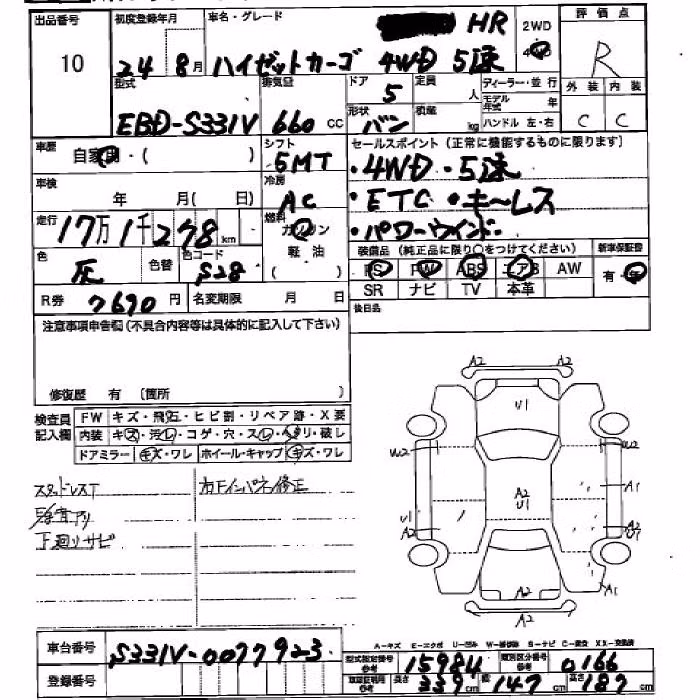 出品番号 初度登録年月 車名・グレード 評価点
10 24年 8月 ハイゼットカーゴ 4WD 5速 HR 2WD 4 R
型式 排気量 ドア 定員 ディーラー・並行 外装 内装
EBD-S331V 660 CC 5 人 モデル年式 年 C C
形状 積載 ハンドル 左・右
バン kg
車歴 自家用・( ) シフト 5MT セールスポイント(正常に機能するものに限ります)
・4WD・5速
車検 年 月( 日) 冷房 AC ・ETC・キーレス
走行 17万1千278km 燃料 ガソリン ・パワーウインドー
軽油 ( ) 装備品(純正品に限り○をつけてください) 新車保証書
色 灰 色替 色コード S28 PS PW ABS エアB AW 有・無
SR ナビ TV 本革
R券 7690円 名変期限 月 日 後日品
注意事項申告欄(不具合内容等は具体的に記入して下さい)
修復歴 有 (箇所 )
検査員記入欄 FW キズ・飛石・ヒビ割・リペア跡・X要
内装 キズ・汚レ・コゲ・穴・スレ・ヘタリ・破レ
ドアミラー キズ・ワレ ホイール・キャップ キズ・ワレ
スタッドレスT カドインパネ修正
アリ
下廻リサビ
A2 A2
U1
W2 W2
A2
U1
A1
U1
A2 A2
A2 A1
A2 A2
A-キズ E-エクボ U-凹ミ W-補修跡 S-サビ C-腐食 XX-交換済
車台番号 S331V-0077923 型式指定番号 参考 15984 類別区分番号 参考 0166
登録番号 車検証明用 参考 長さ 339cm 幅 147cm 高さ 187cm